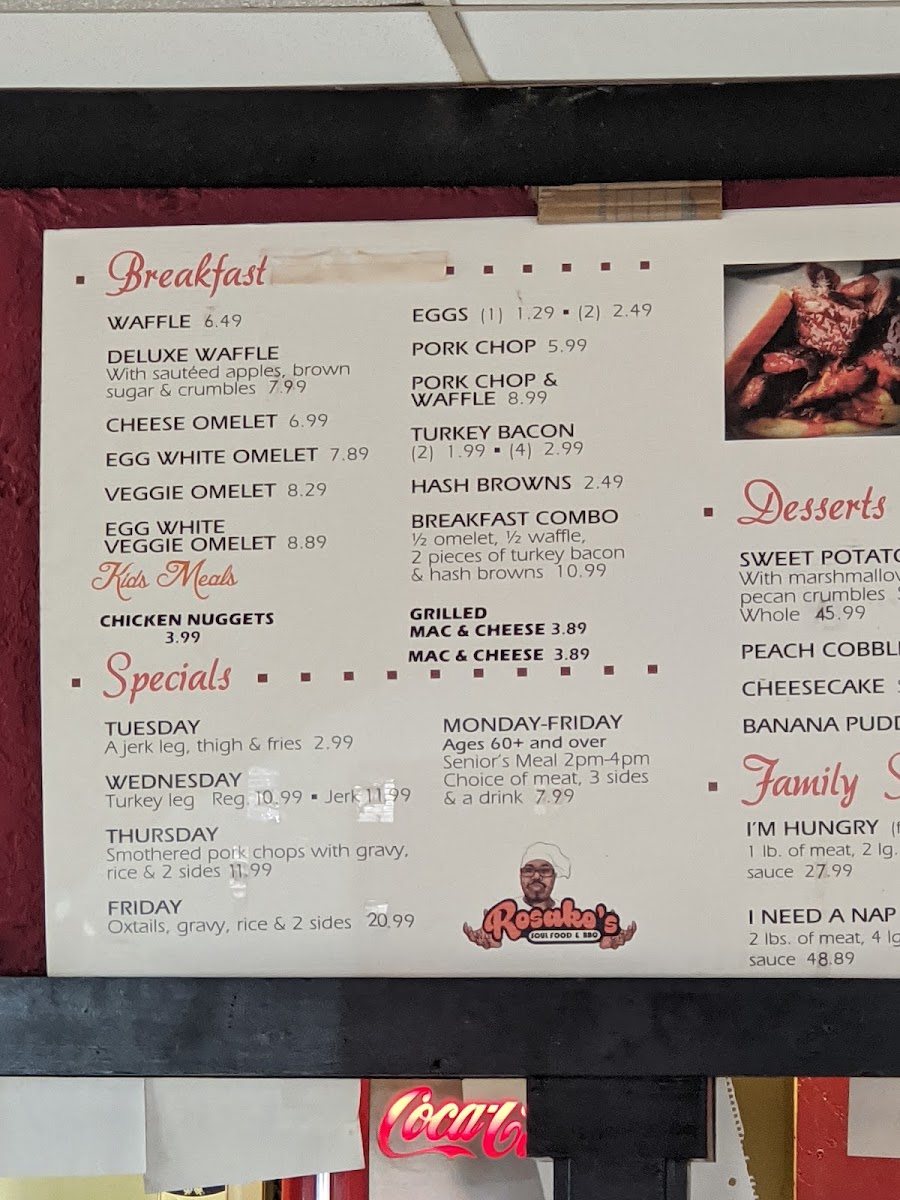 Breakfast
WAFFLE 6.49
DELUXE WAFFLE
With sautéed apples, brown
sugar & crumbles 7.99
CHEESE OMELET 6.99
EGG WHITE OMELET 7.89
VEGGIE OMELET 8.29
EGG WHITE
VEGGIE OMELET 8.89
EGGS (1) 1.29 ▪ (2) 2.49
PORK CHOP 5.99
PORK CHOP &
WAFFLE 8.99
TURKEY BACON
(2) 1.99 ▪ (4) 2.99
HASH BROWNS 2.49
BREAKFAST COMBO
½ omelet, ½ waffle,
2 pieces of turkey bacon
& hash browns 10.99
Kids Meals
CHICKEN NUGGETS
3.99
GRILLED
MAC & CHEESE 3.89
MAC & CHEESE 3.89
Specials
TUESDAY
A jerk leg, thigh & fries 2.99
WEDNESDAY
Turkey leg Reg. 10.99 ▪ Jerk 11.99
THURSDAY
Smothered pork chops with gravy,
rice & 2 sides 11.99
FRIDAY
Oxtails, gravy, rice & 2 sides 20.99
MONDAY-FRIDAY
Ages 60+ and over
Senior's Meal 2pm-4pm
Choice of meat, 3 sides
& a drink 7.99
Rosako's
SOUL FOOD & BBQ
Desserts
SWEET POTATO
With marshmallow
pecan crumbles
Whole 45.99
PEACH COBBL
CHEESECAKE
BANANA PUDD
Family S
I'M HUNGRY
1 lb. of meat, 2 lg.
sauce 27.99
I NEED A NAP
2 lbs. of meat, 4 lg
sauce 48.89
Coca-C